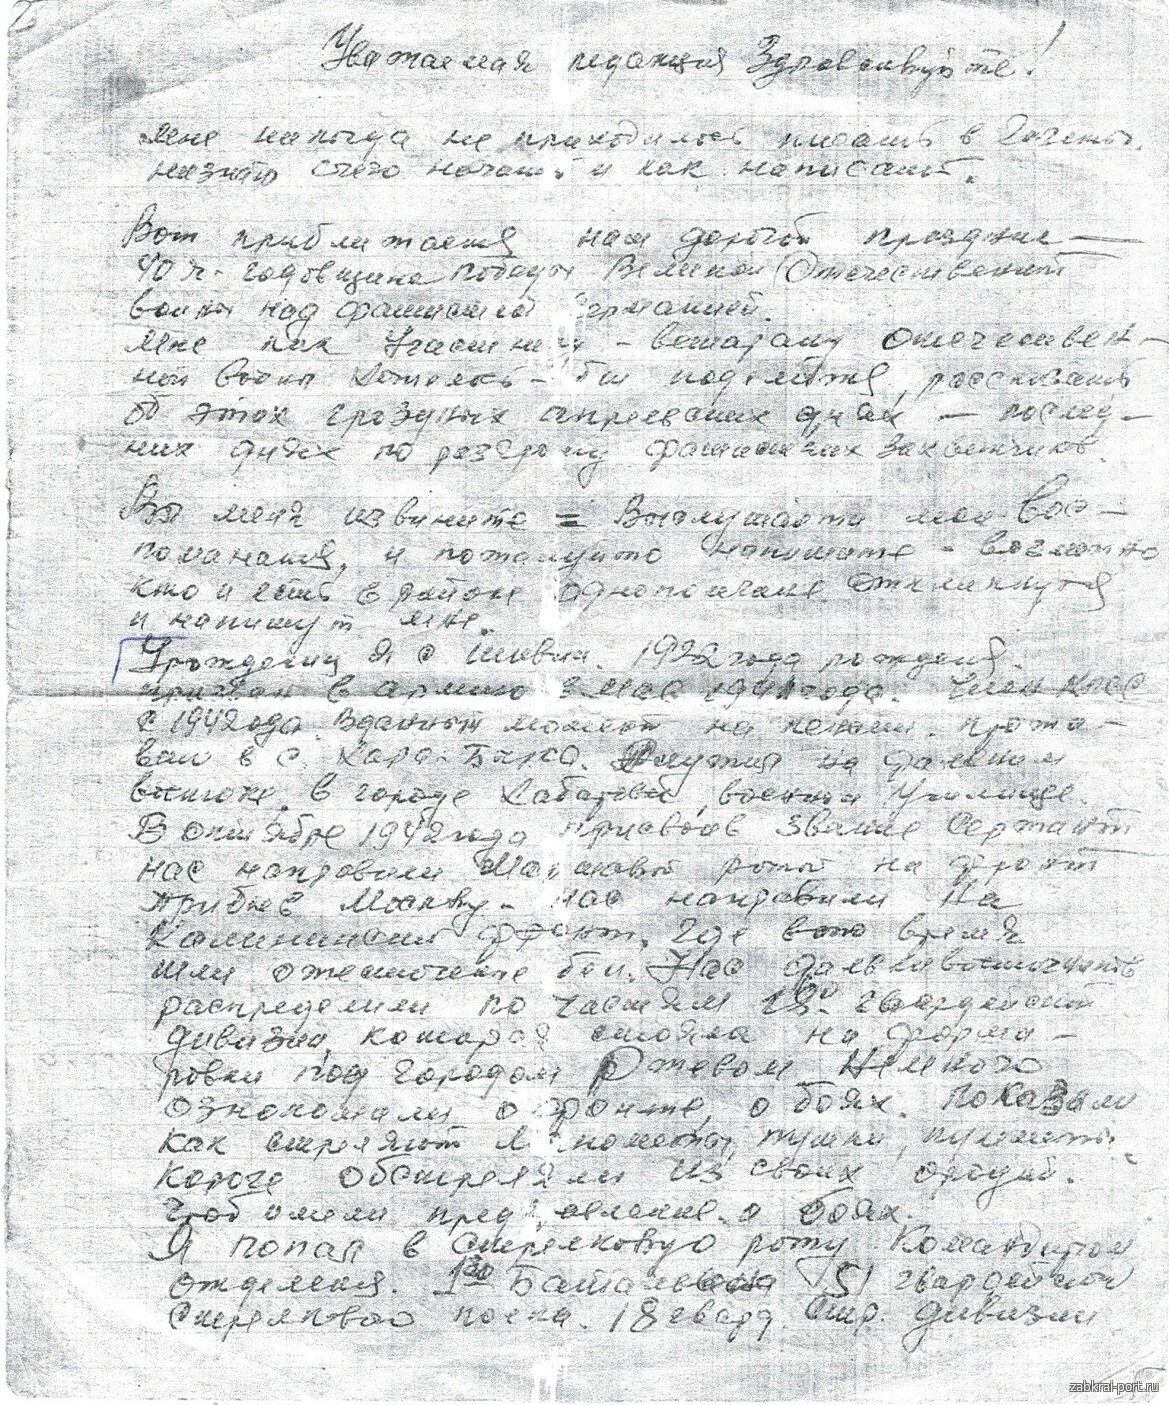 Уважаемая редакция Здравствуйте!
мне никогда не приходилось писать в Газеты.
незнаю счего начат. и как написать.
Вот приближается наш дорогой праздник —
40 я - годовщина победы Великой Отечественной
войны над фашиской Германией.
Мне как Участнику - ветерану Отечествен-
ной войны хотелось - бы поделится, рассказать
об этих грозных апрельских днях — послед-
них днях по разгрому фашиских захватчиков.
Вы меня извините = Выслушайти мои Вос-
поминания, и пожалуйто напишите - возможно
кто и есть в районе однополчане откликнутся
и напишут мне.
Урожденец я с 1922 года рождения.
призван в армию 3 мае 1941 года. Член КПСС
с 1942 года. Вданный момент на пенсии. прожи-
ваю в с. Хара-Бырка. Служил на дальнем
востоке в городе Хабаровск, военном Училище.
В октябре 1942 года присвоив звание Сержант
нас направили Маршевой ротой на фронт
прибыв Москву - нас направили На
Калининский фронт. Где вэто время
шли ожесточенные бои. Нас дальневосточников
распределили по частям 18й гвардейской
дивизии, которая стояла на форми-
ровки под городом Ржевом Немного
ознакомили о фронте, о боях. Показали
как стреляют минометы, пушки, пулеметы.
Короче обстреляли из своих орудий.
Чтоб имели представление о боях.
Я попал в Стрелковую роту Командиром
отделения. 1го Батальона 51 гвардейской
Стрелкового полка. 18 гвард. Стр. дивизии
zabkrai-port.ru